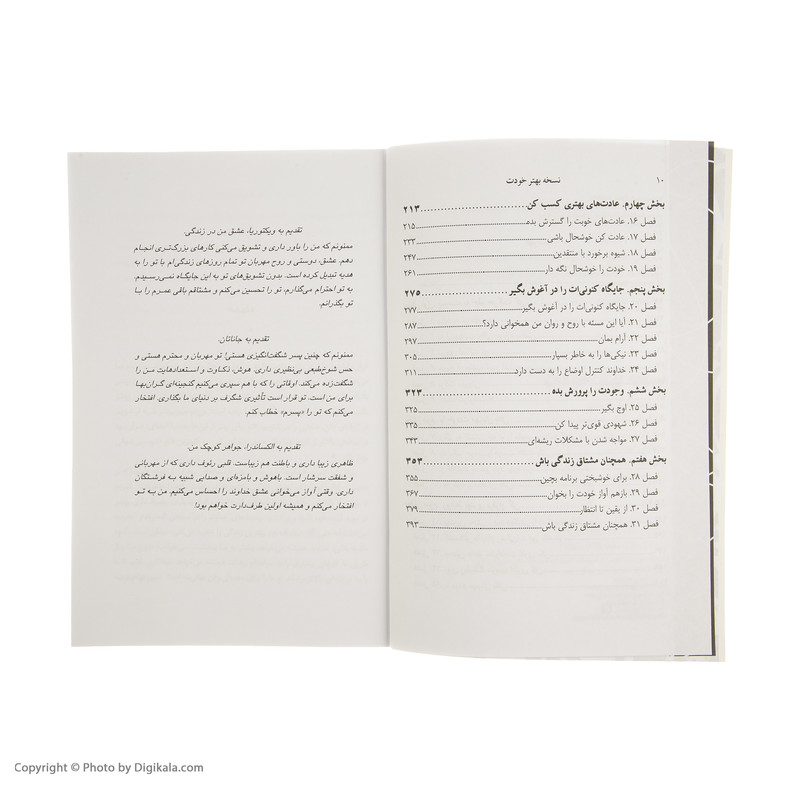 ۱۰ نسخه بهتر خودت
بخش چهارم. عادت‌های بهتری کسب کن ۲۱۳
فصل ۱۶. عادت‌های خوبت را گسترش بده ۲۱۵
فصل ۱۷. عادت کن خوشحال باشی ۲۳۳
فصل ۱۸. شیوه برخورد با منتقدین ۲۴۷
فصل ۱۹. خودت را خوشحال نگه دار ۲۶۱
بخش پنجم. جایگاه کنونی‌ات را در آغوش بگیر ۲۷۵
فصل ۲۰. جایگاه کنونی‌ات را در آغوش بگیر ۲۷۷
فصل ۲۱. آیا این مسئه با روح و روان من همخوانی دارد؟ ۲۸۷
فصل ۲۲. آرام بمان ۲۹۷
فصل ۲۳. نیکی‌ها را به خاطر بسپار ۳۰۵
فصل ۲۴. خداوند کنترل اوضاع را به دست دارد ۳۱۱
بخش ششم. وجودت را پرورش بده ۳۲۳
فصل ۲۵. اوج بگیر ۳۲۵
فصل ۲۶. شهودی قوی‌تر پیدا کن ۳۳۵
فصل ۲۷. مواجه شدن با مشکلات ریشه‌ای ۳۴۳
بخش هفتم. همچنان مشتاق زندگی باش ۳۵۳
فصل ۲۸. برای خوشبختی برنامه بچین ۳۵۵
فصل ۲۹. بازهم آواز خودت را بخوان ۳۶۷
فصل ۳۰. از یقین تا انتظار ۳۷۹
فصل ۳۱. همچنان مشتاق زندگی باش ۳۹۳
تقدیم به ویکتوریا، عشق من در زندگی.
ممنونم که من را باور داری و تشویق می‌کنی کارهای بزرگ‌تری انجام
دهم. عشق، دوستی و روح مهربان تو تمام روزهای زندگی‌ام با تو را به
هدیه تبدیل کرده است. بدون تشویق‌های تو به این جایگاه نمی‌رسیدم.
به تو احترام می‌گذارم، تو را تحسین می‌کنم و مشتاقم باقی عمرم را با
تو بگذرانم.
تقدیم به جاناتان.
ممنونم که چنین پسر شگفت‌انگیزی هستی! تو مهربان و محترم هستی و
حس شوخ‌طبعی بی‌نظیری داری. هوش، ذکاوت و استعدادهایت من را
شگفت‌زده می‌کند. اوقاتی را که با هم سپری می‌کنیم گنجینه‌ای گران‌بها
برای من است. تو قرار است تأثیری شگرف بر دنیای ما بگذاری. افتخار
می‌کنم که تو را «پسرم» خطاب کنم.
تقدیم به الکساندرا، جواهر کوچک من.
ظاهری زیبا داری و باطنت هم زیباست. قلبی رئوف داری که از مهربانی
و شفقت سرشار است. باهوش و بامزه‌ای و صدایی شبیه به فرشتگان
داری. وقتی آواز می‌خوانی عشق خداوند را احساس می‌کنیم. من به تو
افتخار می‌کنم و همیشه اولین طرف‌دارت خواهم بود!
Copyright © Photo by Digikala.com